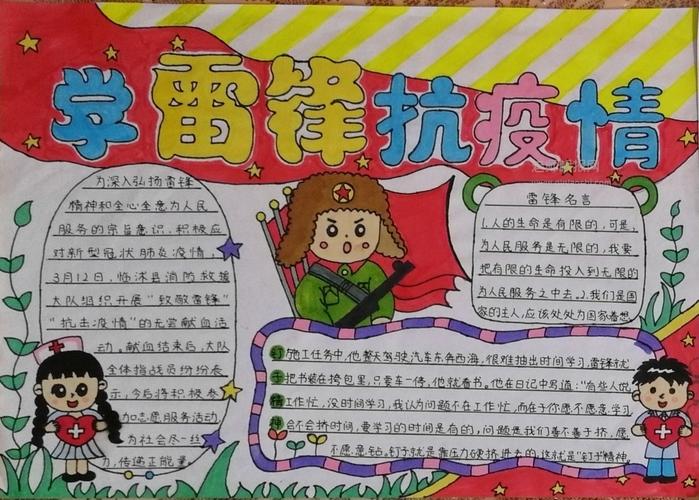 学雷锋抗疫情
为深入弘扬雷锋
精神和全心全意为人民
服务的宗旨意识,积极应
对新型冠状肺炎疫情,
3月12日,临沭县消防救援
大队组织开展"致敬雷锋"
"抗击疫情"的无尝献血活
动。献血结束后,大队
全体指战员纷纷表
示,今后将积极参
加志愿服务活动,
为社会尽一丝
力,传递正能量。
雷锋名言
1.人的生命是有限的,可是,
为人民服务是无限的,我要
把有限的生命投入到无限的
为人民服务之中去。2.我们是国
家的主人,应该处处为国家着想
钉子精神
施工任务中,他整天驾驶汽车东奔西海,很难抽出时间学习,雷锋就
把书装在挎包里,只要车一停,他就看书。他在日记中写道:"有些人说
工作忙,没时间学习,我认为问题不在工作忙,而在于你愿不愿意学习
会不会挤时间,要学习的时间是有的,问题是我们善不善于挤,愿
不愿意钻。钉子就是靠压力硬挤进去的,这就是"钉子"精神。